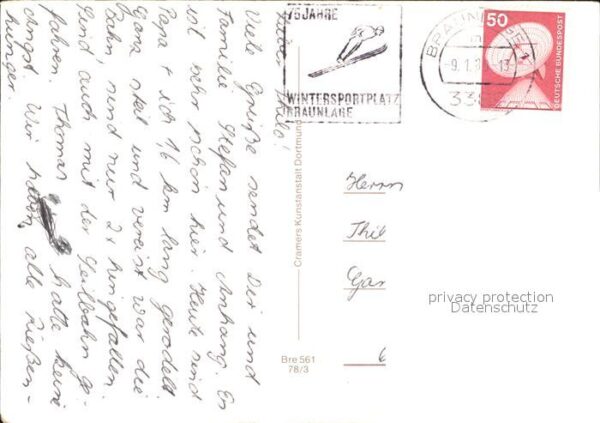 Lieber Thilo!
Viele Grüße sendet Dir und
Familie Stefan und Anhang. Es
ist sehr schön hier. Heute sind
Papa + ich 1,6 km lang gerodelt
Ganz steil und vereist war die
Bahn, sind nur 2x hingefallen.
Sind auch mit der Seilbahn ge-
fahren. Thomas hatte keine
Angst. Wir hatten alle Riesen-
hunger.
75 JAHRE
WINTERSPORTPLATZ
BRAUNLAGE
BRAUNLAGE 1
-9.1.
-13
33
50
DEUTSCHE BUNDESPOST
Cramers Kunstanstalt Dortmund
Bre 561
78/3
Herrn
Thil
Gar
privacy protection
Datenschutz